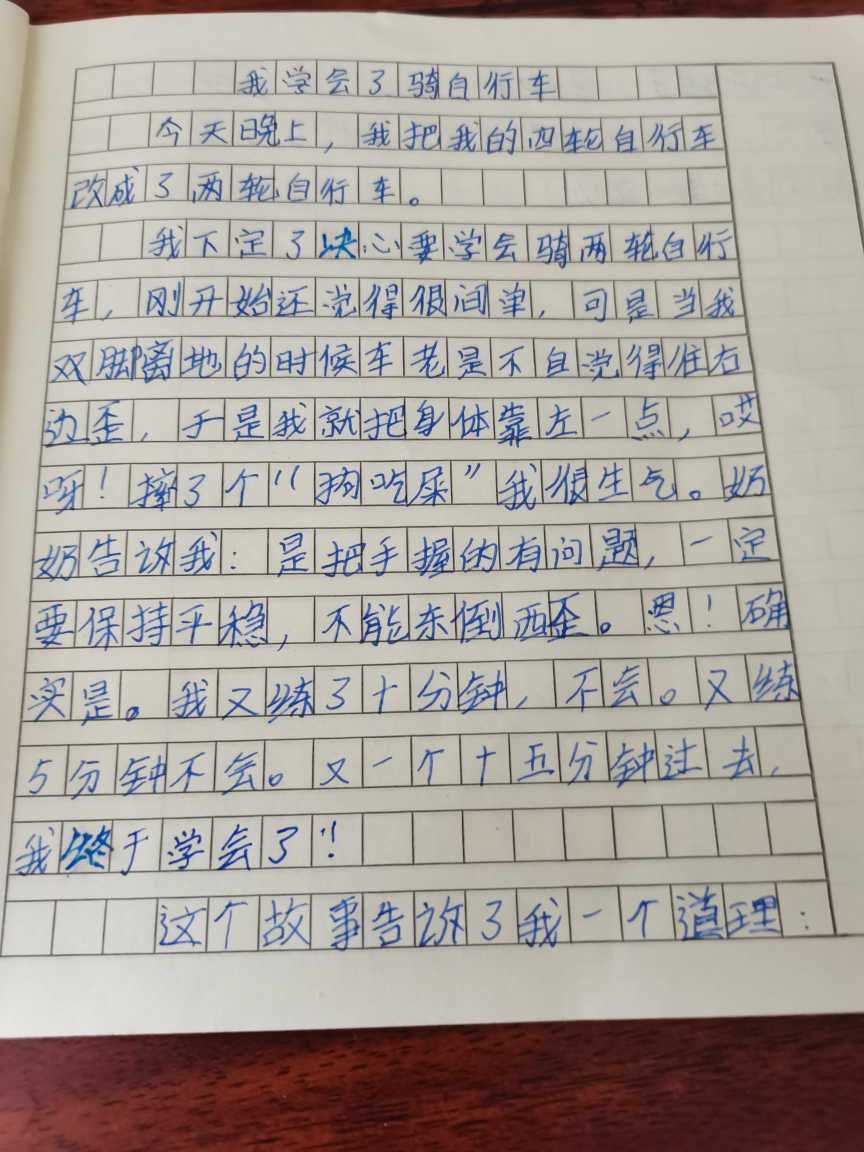 我学会了骑自行车
今天晚上，我把我的四轮自行车
改成了两轮自行车。
我下定了决心要学会骑两轮自行
车，刚开始还觉得很间单，可是当我
双脚离地的时候车老是不自觉得往右
边歪，于是我就把身体靠左一点，哎
呀！摔了个“狗吃屎”我很生气。奶
奶告诉我：是把手握的有问题，一定
要保持平稳，不能东倒西歪。恩！确
实是。我又练了十分钟，不会。又练
5分钟不会。又一个十五分钟过去，
我终于学会了！
这个故事告诉了我一个道理：